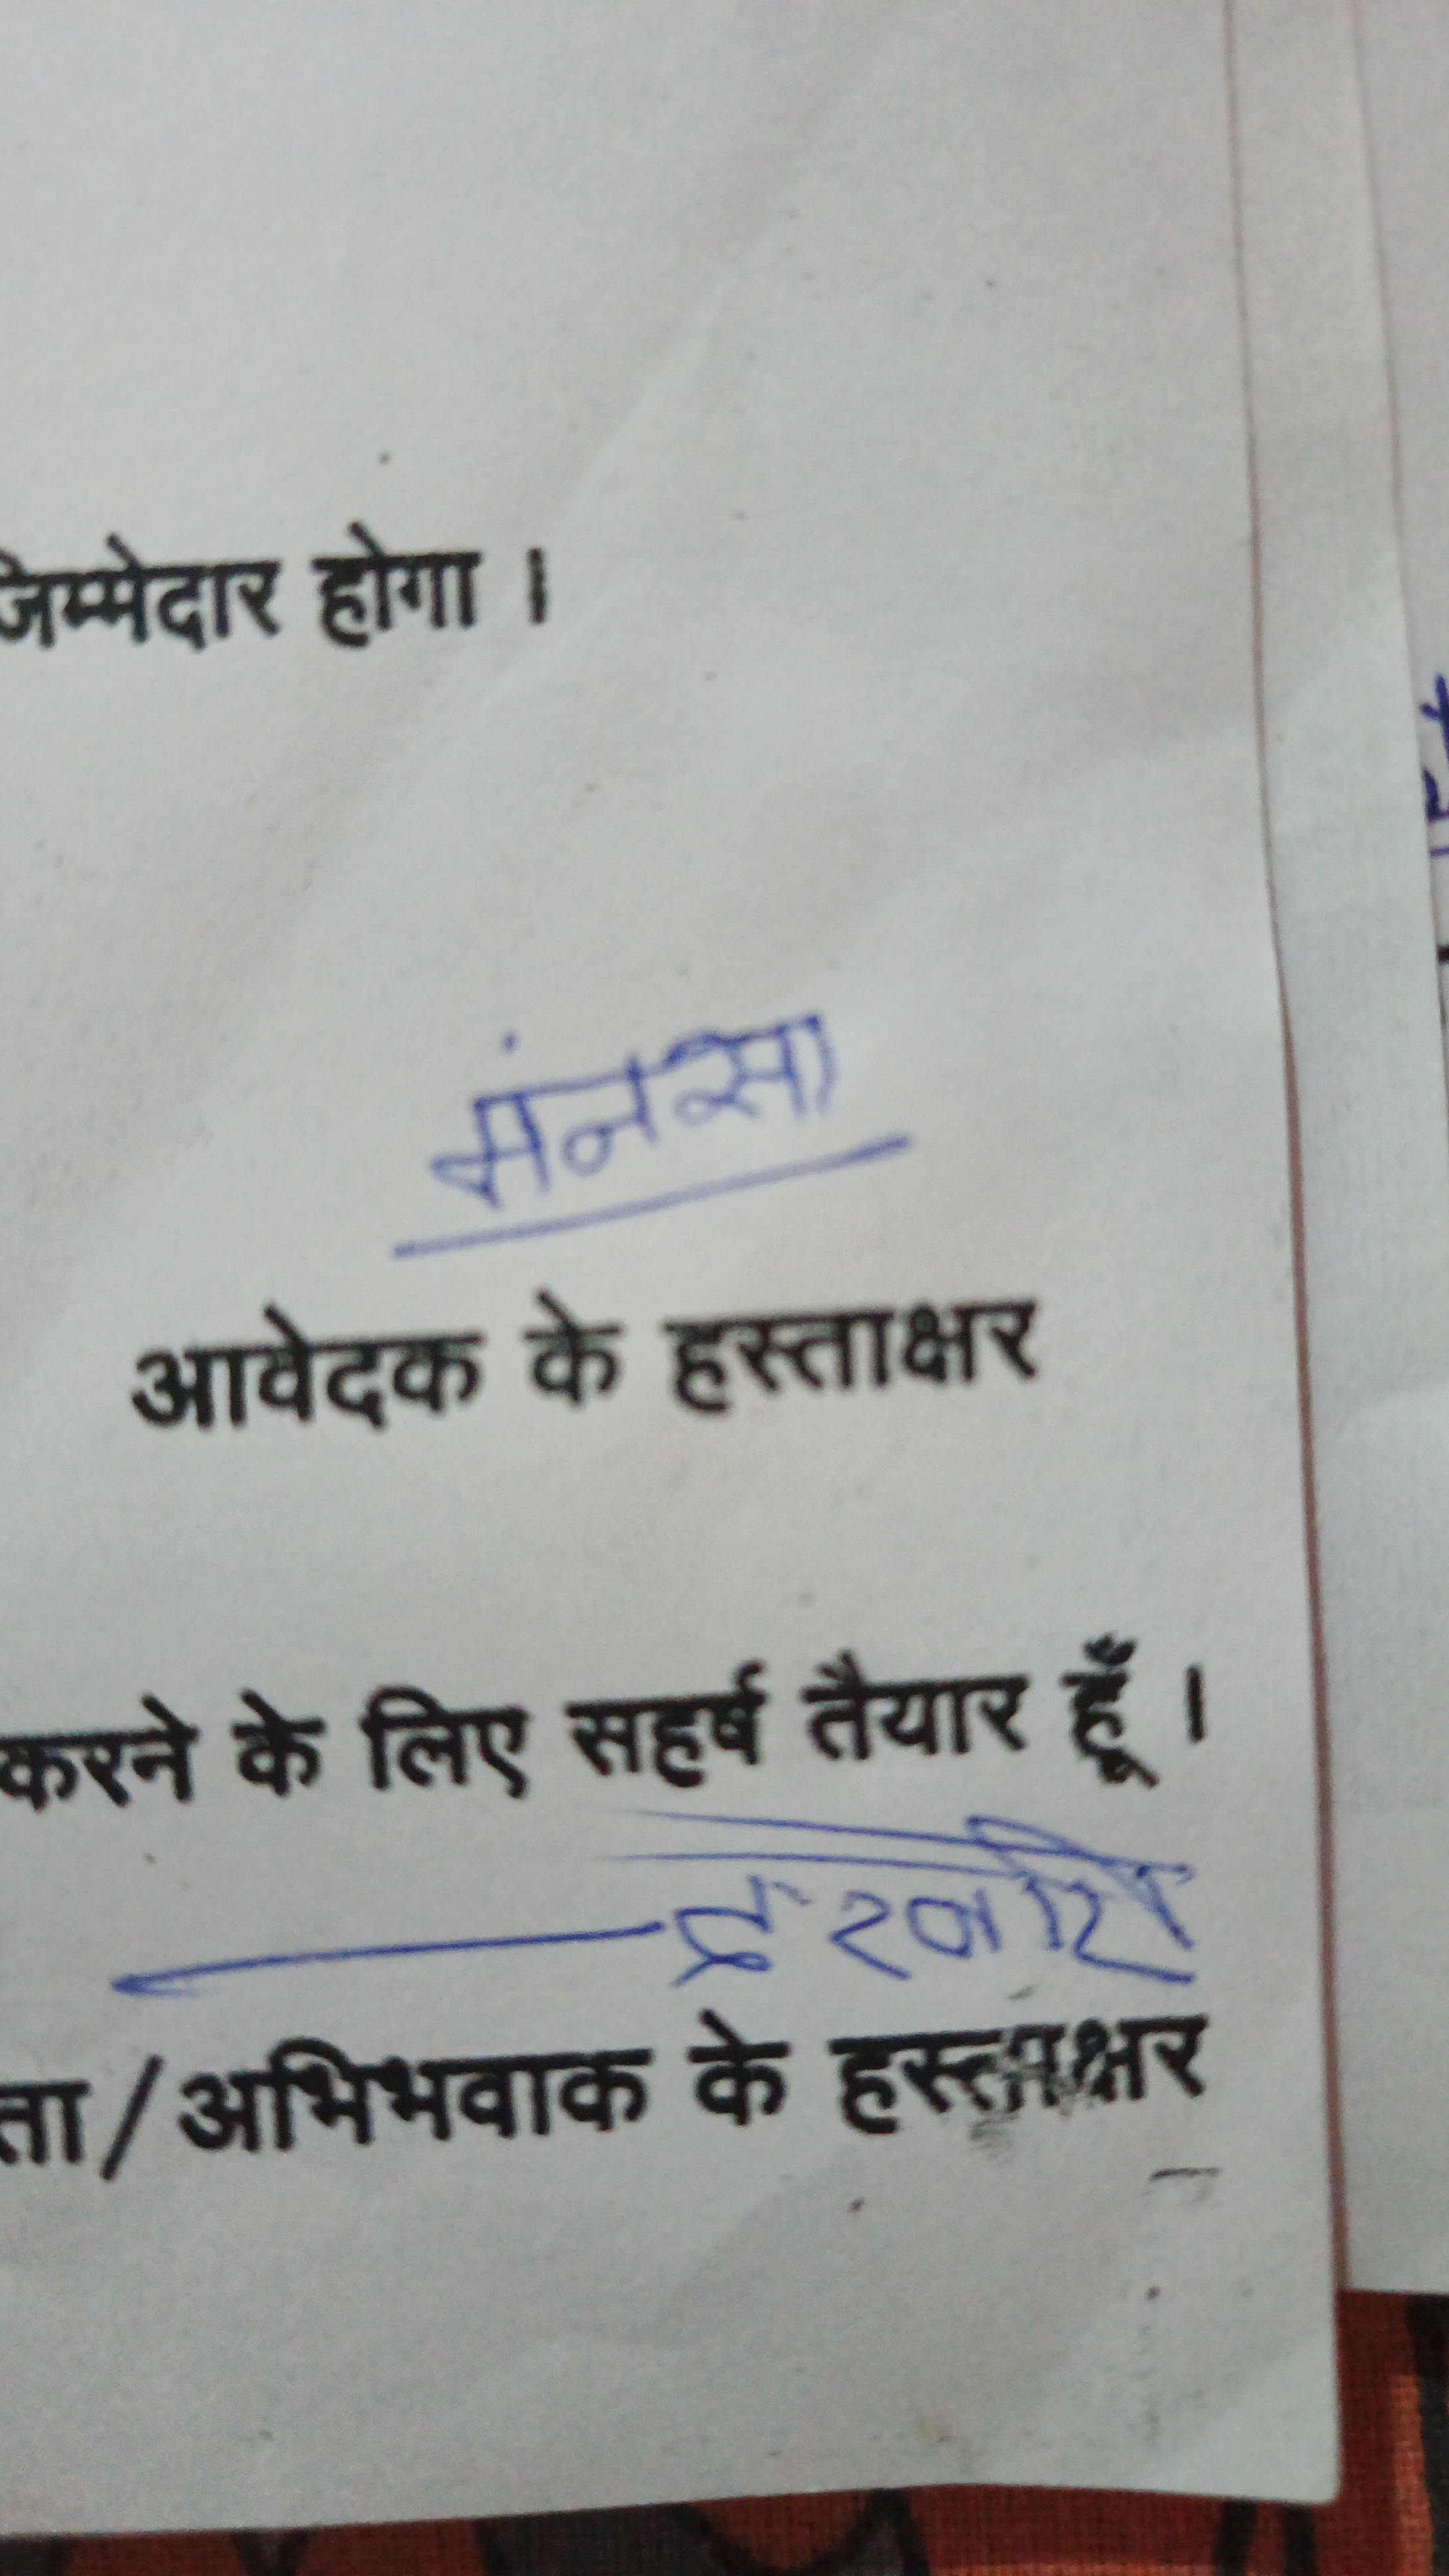 जिम्मेदार होगा ।
मंनसा
आवेदक के हस्ताक्षर
करने के लिए सहर्ष तैयार हूँ ।
ता/अभिभवाक के हस्ताक्षर